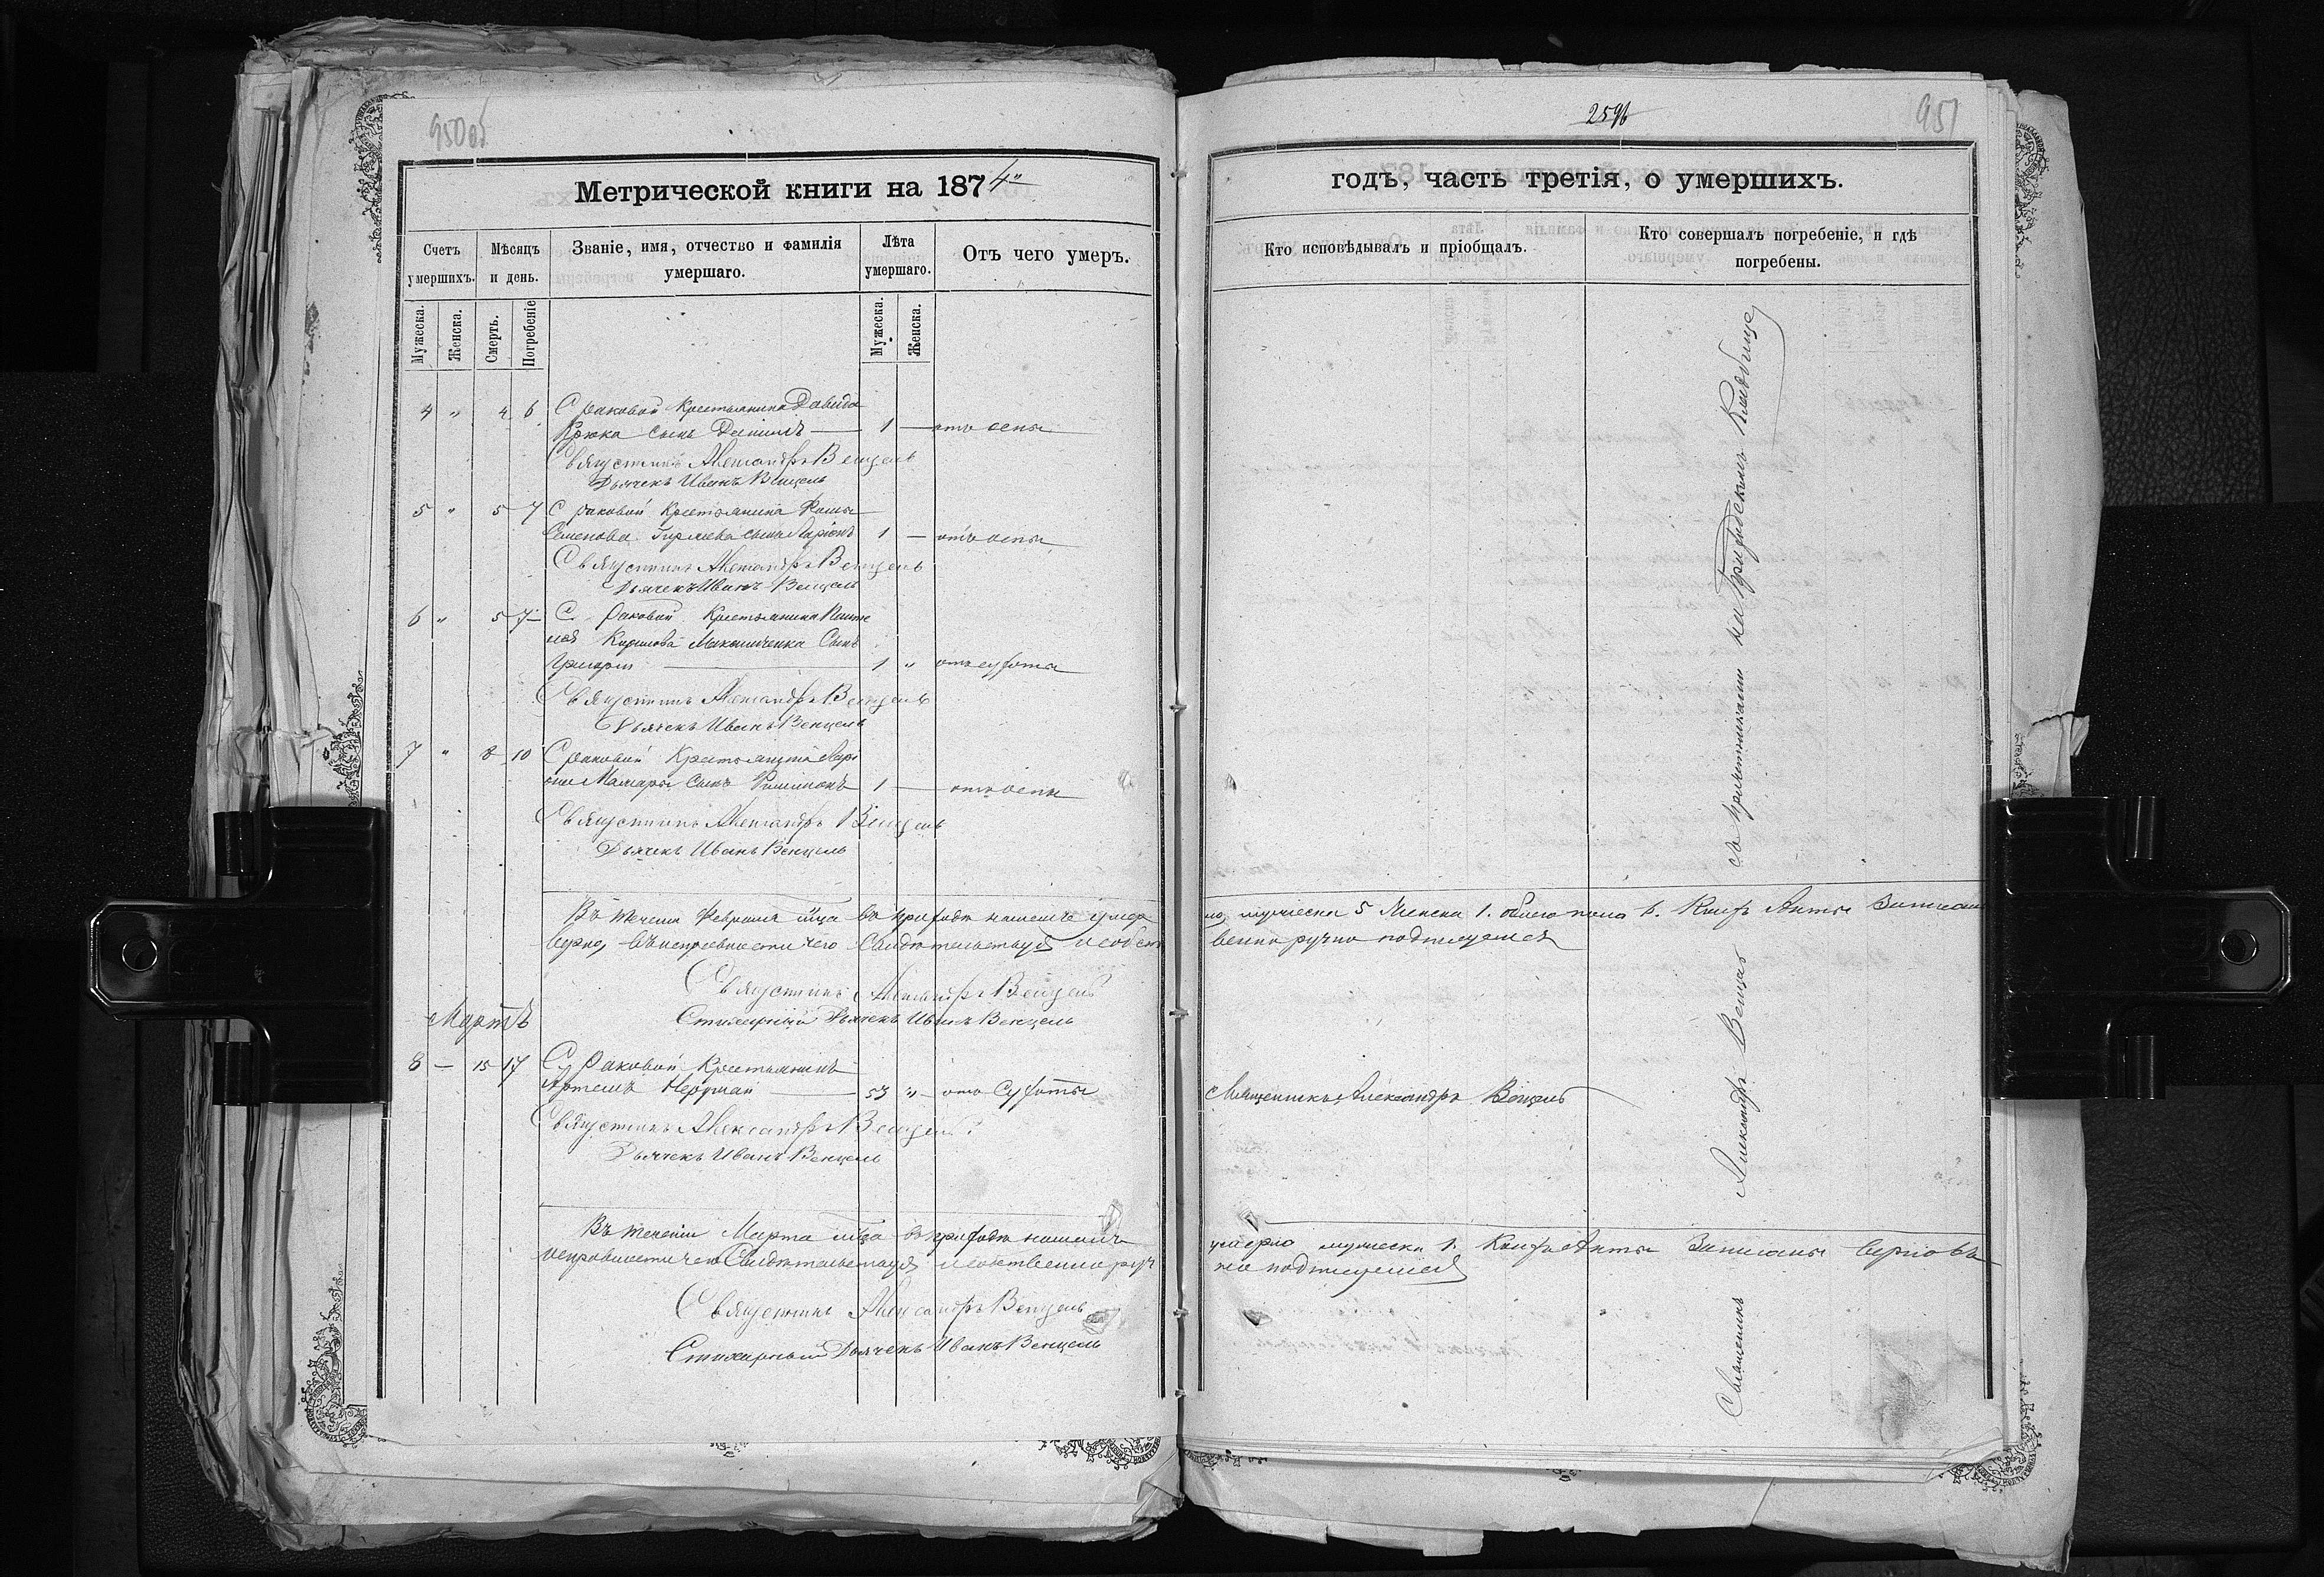 950об
Метрической книги на 1874й
Счетъ умершихъ.
Мѣсяцъ и день.
Званіе, имя, отчество и фамилія умершаго.
Лѣта умершаго.
Отъ чего умеръ.
Мужеска.
Женска.
Смерть.
Погребеніе
Мужеска.
Женска.
4 " 4 6 С Раковой Крестьянина Давида
Крюка сынъ Даніилъ — 1 — отъ оспы
Священникъ Александръ Венцель
Дьячекъ Иванъ Венцель
5 " 5 7 С Раковой Крестьянина Фомы
Семенова сынъ Ларіонъ 1 — отъ оспы
Священникъ Александръ Венцель
Дьячекъ Иванъ Венцель
6 " 5 7 С Раковой Крестьянина
Кирилова сынъ
Григорій — 1 " отъ сухоты
Священникъ Александръ Венцель
Дьячекъ Иванъ Венцель
7 " 8 10 С Раковой Крестьянина
сынъ Филимонъ 1 — отъ оспы
Священникъ Александръ Венцель
Дьячекъ Иванъ Венцель
Въ теченіи Февраля мца въ приходѣ нашемъ умер
верно, въ неправности чего свидѣтельствуя и собст
Священникъ Александръ Венцель
Стихарный Дьячекъ Иванъ Венцель
Мартъ
8 — 15 17 С Раковой Крестьянинъ
Артемъ — 53 " отъ Сухоты
Священникъ Александръ Венцель
Дьячекъ Иванъ Венцель
Въ теченіи Марта мца въ приходѣ нашемъ
неправности чего Свидѣтельствуя и собственноруч
Священникъ Александръ Венцель
Стихарный Дьячекъ Иванъ Венцель
951
годъ, часть третія, о умершихъ.
Кто исповѣдывалъ и пріобщалъ.
Кто совершалъ погребеніе, и гдѣ погребены.
ло, мужеска 5 женска 1. обоего пола 6.
венно ручно подписуемся
Священникъ Александръ Венцель
умерло мужеска 1. Записаны верно въ
но подписуемся
Священникъ Александръ Венцель со причетниками на Приходскомъ Кладбище